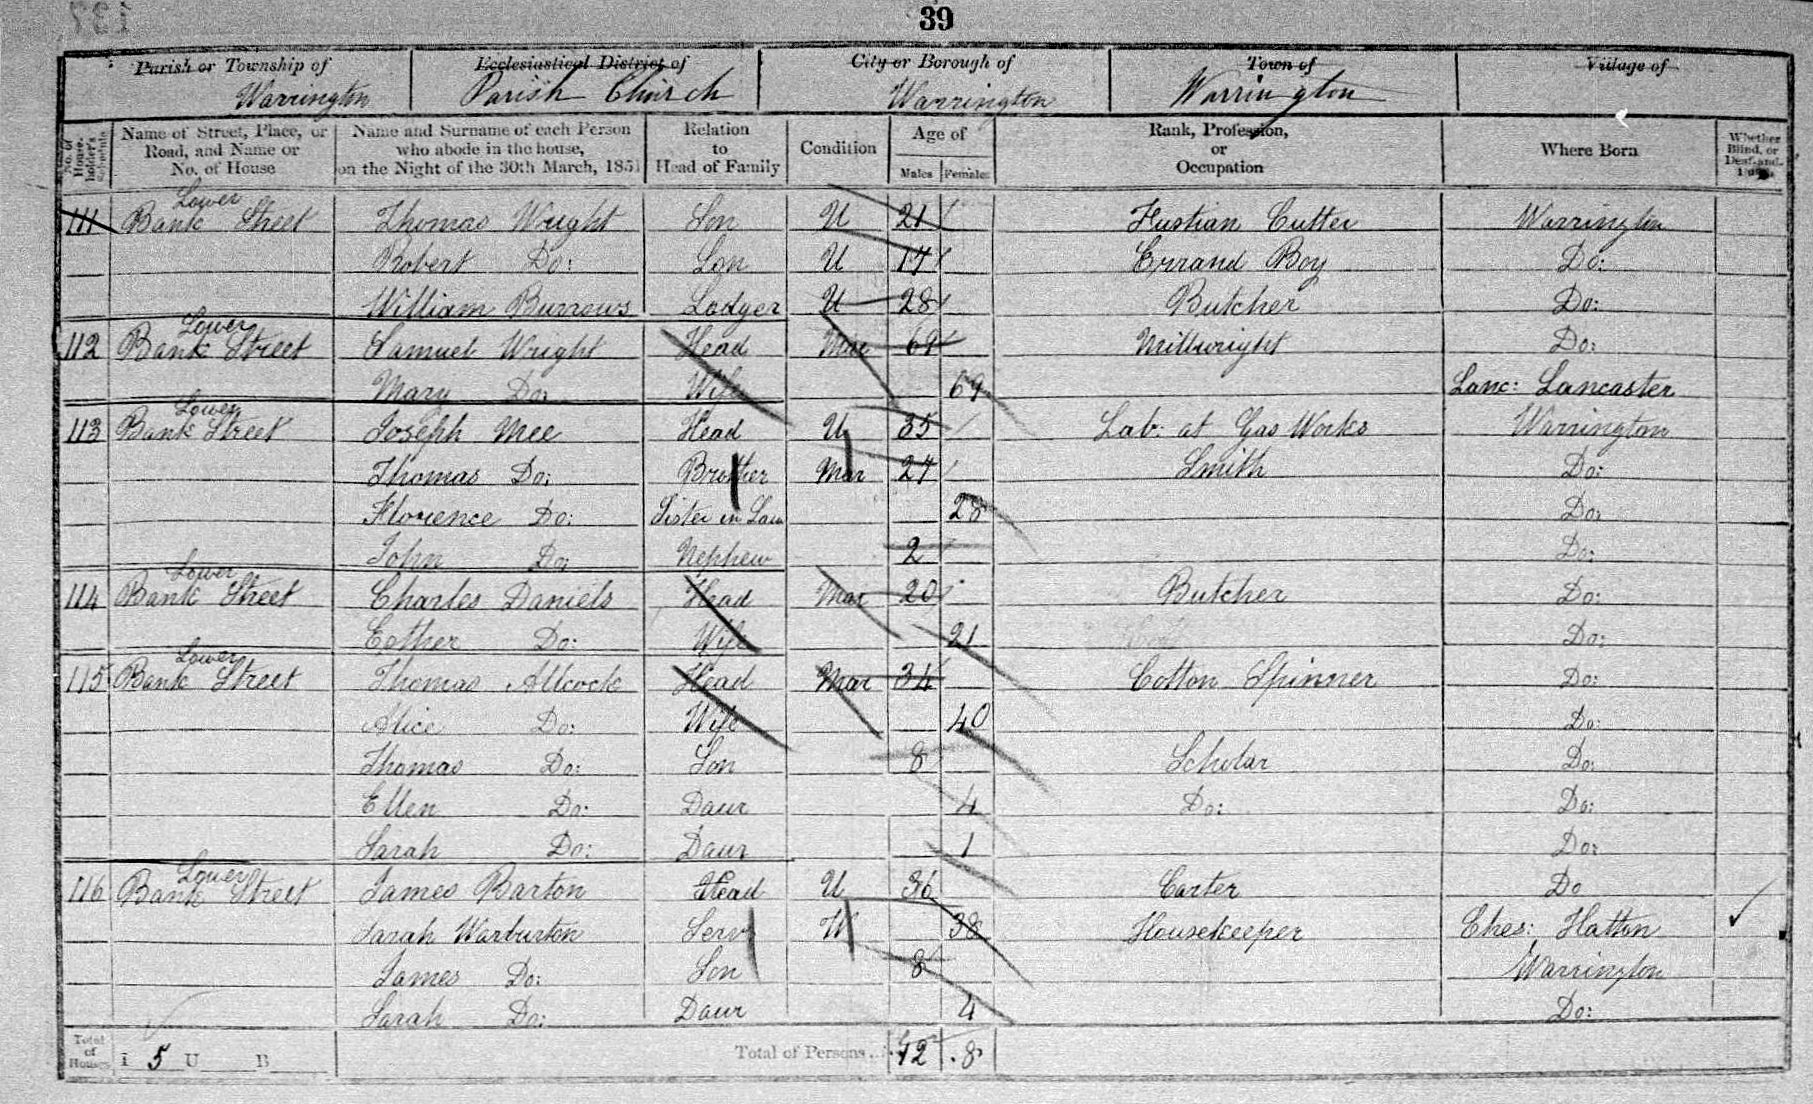 39
Parish or Township of Ecclesiastical District of City or Borough of Town of Village of
Warrington Parish Church Warrington Warrington
No. of House-holder's Schedule Name of Street, Place, or Road, and Name or No. of House Name and Surname of each Person who abode in the house, on the Night of the 30th March, 1851 Relation to Head of Family Condition Age of Males Females Rank, Profession, or Occupation Where Born Whether Blind, or Deaf-and-Dumb
111 Lower Bank Street Thomas Wright Son U 21 Fustian Cutter Warrington
Robert Do: Son U 17 Errand Boy Do:
William Burrows Lodger U 28 Butcher Do:
112 Lower Bank Street Samuel Wright Head Mar 69 Millwright Do:
Mary Do: Wife 69 Lanc: Lancaster
113 Lower Bank Street Joseph Mee Head U 35 Lab: at Gas Works Warrington
Thomas Do: Brother Mar 27 Smith Do:
Florence Do: Sister in Law 28 Do:
John Do: Nephew 2 Do:
114 Lower Bank Street Charles Daniels Head Mar 20 Butcher Do:
Esther Do: Wife 21 Do:
115 Lower Bank Street Thomas Allcock Head Mar 34 Cotton Spinner Do:
Alice Do: Wife 40 Do:
Thomas Do: Son 8 Scholar Do:
Ellen Do: Daur 4 Do: Do:
Sarah Do: Daur 1 Do:
116 Lower Bank Street James Barton Head U 36 Carter Do
Sarah Warburton Serv W 38 Housekeeper Ches: Hatton
James Do: Son 8 Warrington
Sarah Do: Daur 4 Do:
Total of Houses I 5 U B Total of Persons 12 8